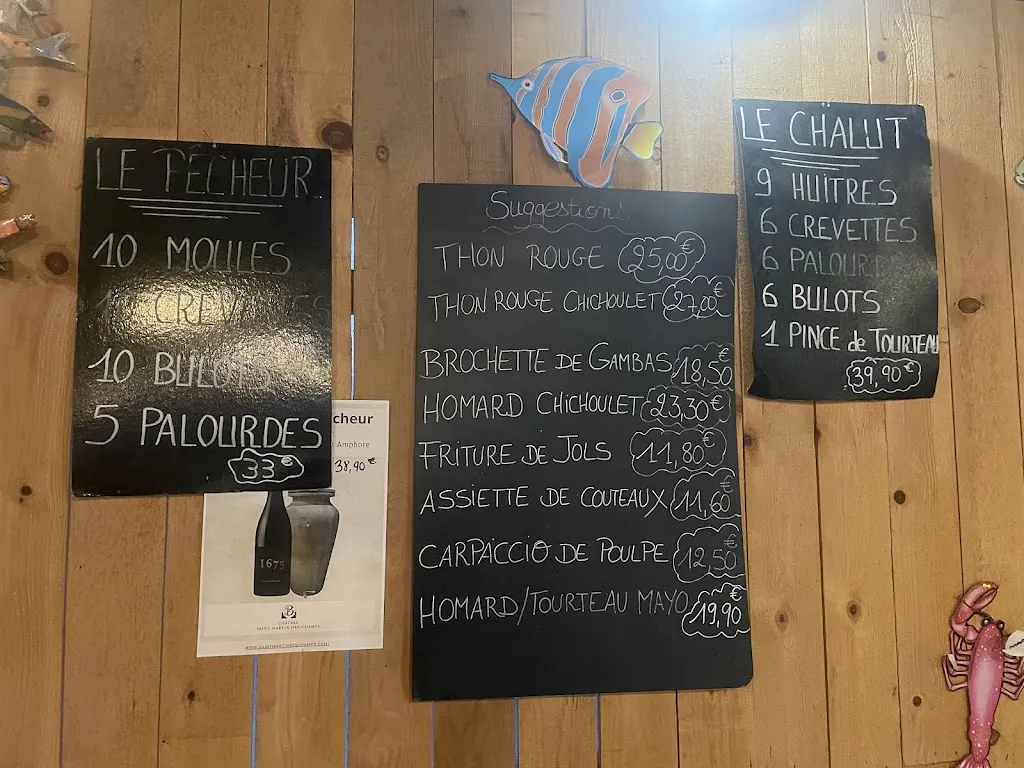 LE PÊCHEUR
10 MOULES
CREVETTES
10 BULOTS
5 PALOURDES
33€
cheur
Amphore
38,90€
1675
B
CHÂTEAU
SAINT MARTIN DES CHAMPS
WWW.SAINTMARTINDESCHAMPS.COM
Suggestions
THON ROUGE 25,00€
THON ROUGE CHICHOULET 27,00€
BROCHETTE DE GAMBAS 18,50€
HOMARD CHICHOULET 23,30€
FRITURE DE JOLS 11,80€
ASSIETTE DE COUTEAUX 11,60€
CARPACCIO DE POULPE 12,50€
HOMARD/TOURTEAU MAYO 19,90€
LE CHALUT
9 HUITRES
6 CREVETTES
6 PALOURD
6 BULOTS
1 PINCE de TOURTEAU
39,90€